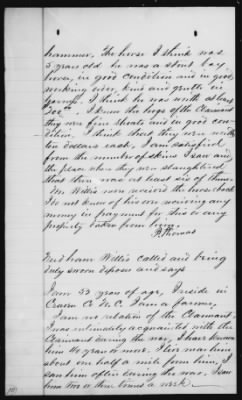 hammer. The horse I think was
5 years old he was a stout bay
horse, in good condition and in good
working order, kind and gentle in
I think he was worth at least
I know the hogs of the Claimant
they were fine shoats and in good con-
dition. I think that they were worth
ten dollars each, I am satisfied
from the number of skins I saw and
the place where they were slaughtered
that there was at least six of them.
Mr. Willis never received the horse back
I do not know of his ever receiving any
money in payment for this or any
property taken from him.
Thomas
Needham Willis Called and being
duly sworn deposes and says
I am 53 years of age, I reside in
Craven Co N.C. I am a farmer,
I am no relation of the Claimant
I was intimately acquainted with the
Claimant during the war, I have known
him 40 years or more. I live near him
about one half a mile from him, I
saw him often during the war, I saw
him two or three times a week.